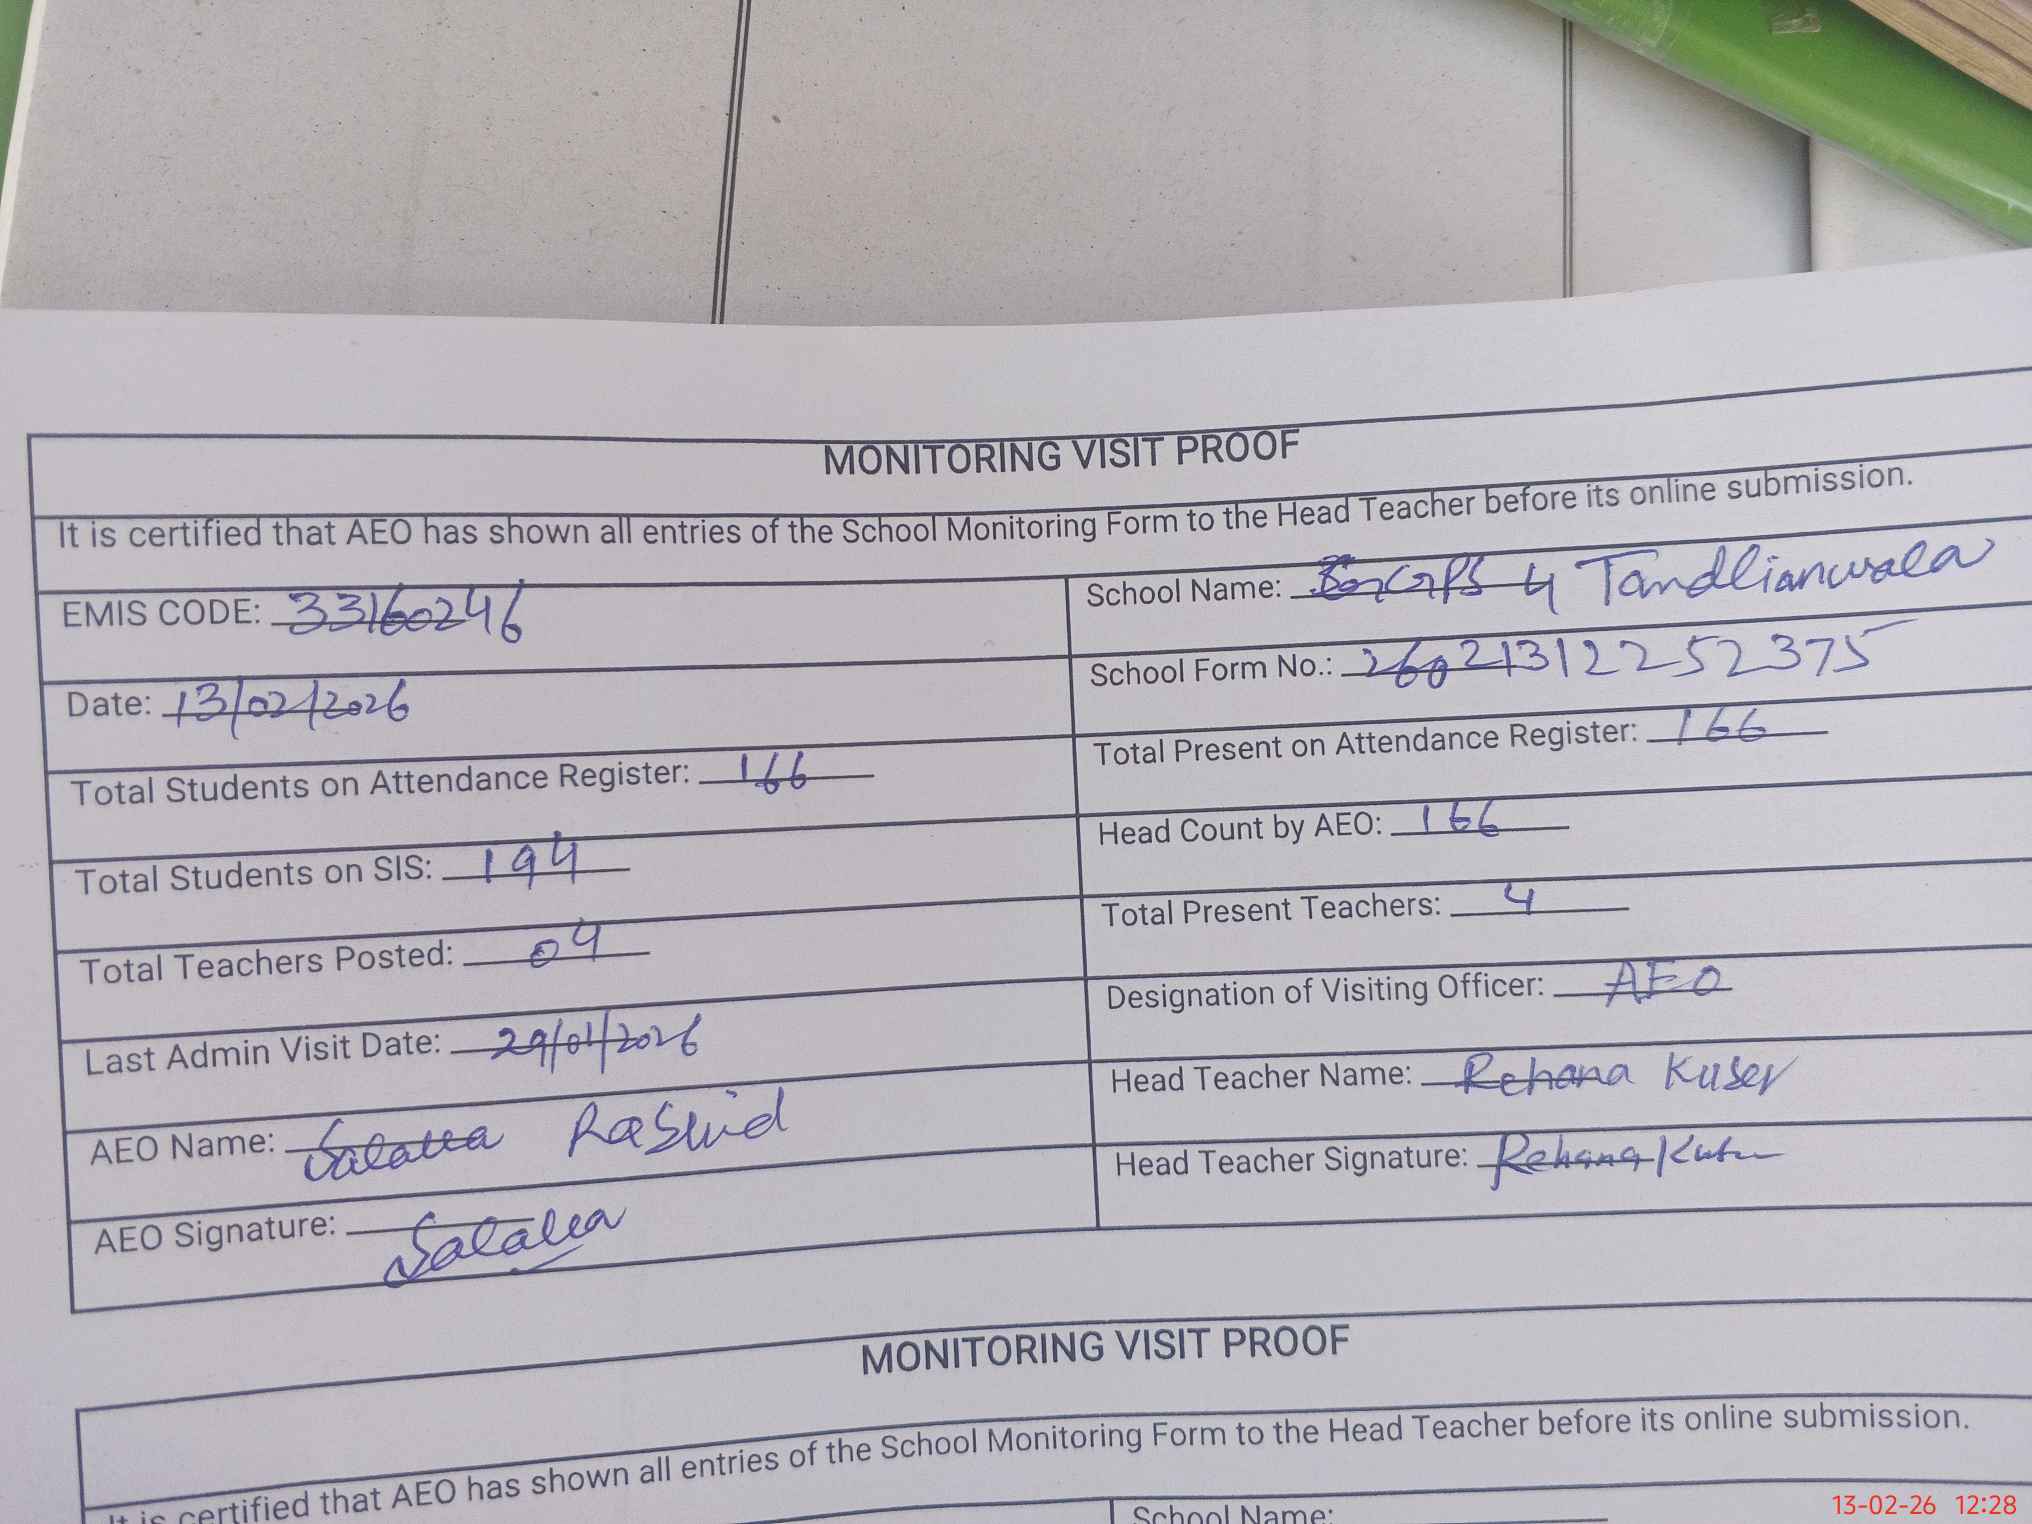 MONITORING VISIT PROOF
It is certified that AEO has shown all entries of the School Monitoring Form to the Head Teacher before its online submission.
EMIS CODE: 33160246
School Name: GPS 4 Tandlianwala
Date: 13/02/2026
School Form No.: 26021312252375
Total Students on Attendance Register: 166
Total Present on Attendance Register: 166
Total Students on SIS: 194
Head Count by AEO: 166
Total Teachers Posted: 04
Total Present Teachers: 4
Last Admin Visit Date: 29/01/2026
Designation of Visiting Officer: AEO
AEO Name: Rashid
Head Teacher Name: Rehana Kuser
AEO Signature:
Head Teacher Signature: Rehana
MONITORING VISIT PROOF
It is certified that AEO has shown all entries of the School Monitoring Form to the Head Teacher before its online submission.
School Name:
13-02-26 12:28